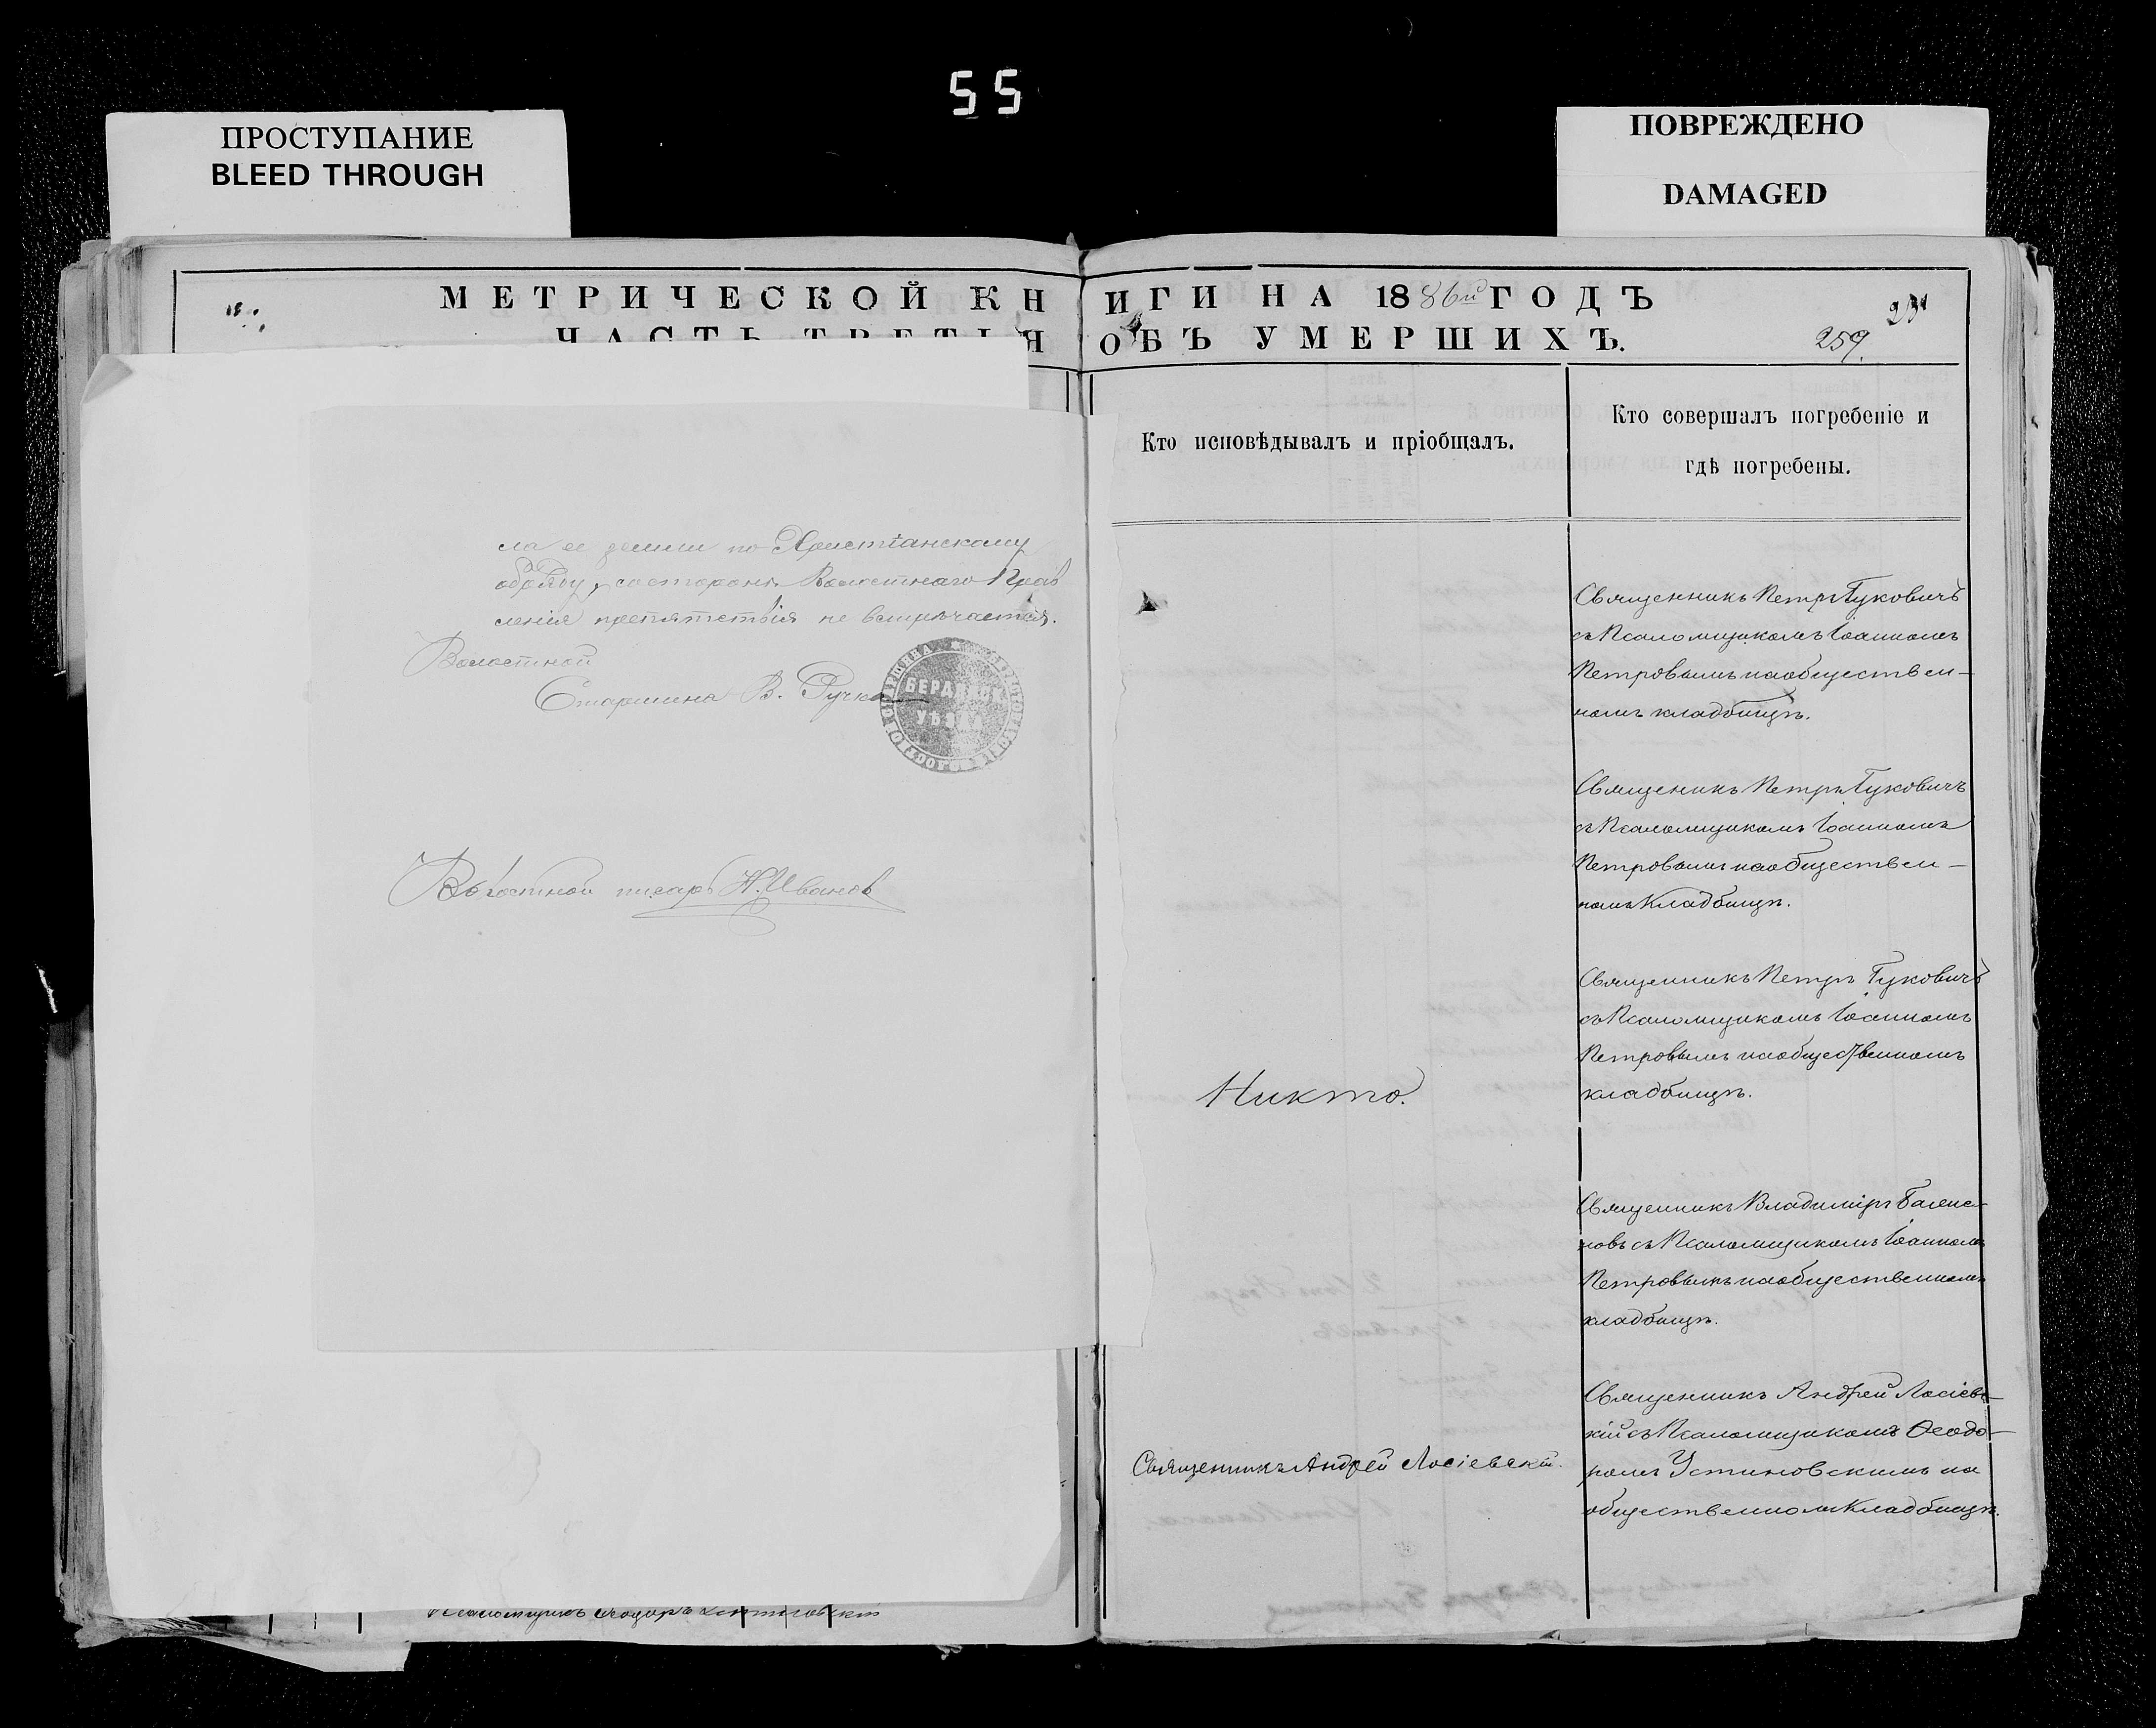 55
ПРОСТУПАНИЕ
BLEED THROUGH
ПОВРЕЖДЕНО
DAMAGED
МЕТРИЧЕСКОЙ КНИГИ НА 1886й ГОДЪ
ЧАСТЬ ТРЕТІЯ ОБЪ УМЕРШИХЪ.
231
259.
ла ее земли по Христіанскому
обряду, со стороны Волостнаго Прав
ленія препятствія не встрѣчается.
Волостной
Старшина В. Ручка
БЕРДЯНСК
УѢЗДА
Волостной писарь Н. Иванов
Псаломщикъ Ѳеодоръ
Кто исповѣдывалъ и пріобщалъ.
Никто.
Священникъ Андрей Лосіевскій.
Кто совершалъ погребеніе и
гдѣ погребены.
Священникъ Петръ Гуковичъ
съ Псаломщикомъ Іоанномъ
Петровымъ на обществен-
номъ кладбищѣ.
Священикъ Петръ Гуковичъ
съ Псаломщикомъ Іоанномъ
Петровымъ на обществен-
номъ кладбищѣ.
Священникъ Петръ Гуковичъ
съ Псаломщикомъ Іоанномъ
Петровымъ на общественномъ
кладбищѣ.
Священникъ Владиміръ
новъ съ Псаломщикомъ Іоанномъ
Петровымъ на общественномъ
кладбищѣ.
Священникъ Андрей Лосіевс-
кій съ Псаломщикомъ Ѳеодо-
ромъ Устиновскимъ на
общественномъ кладбищѣ.